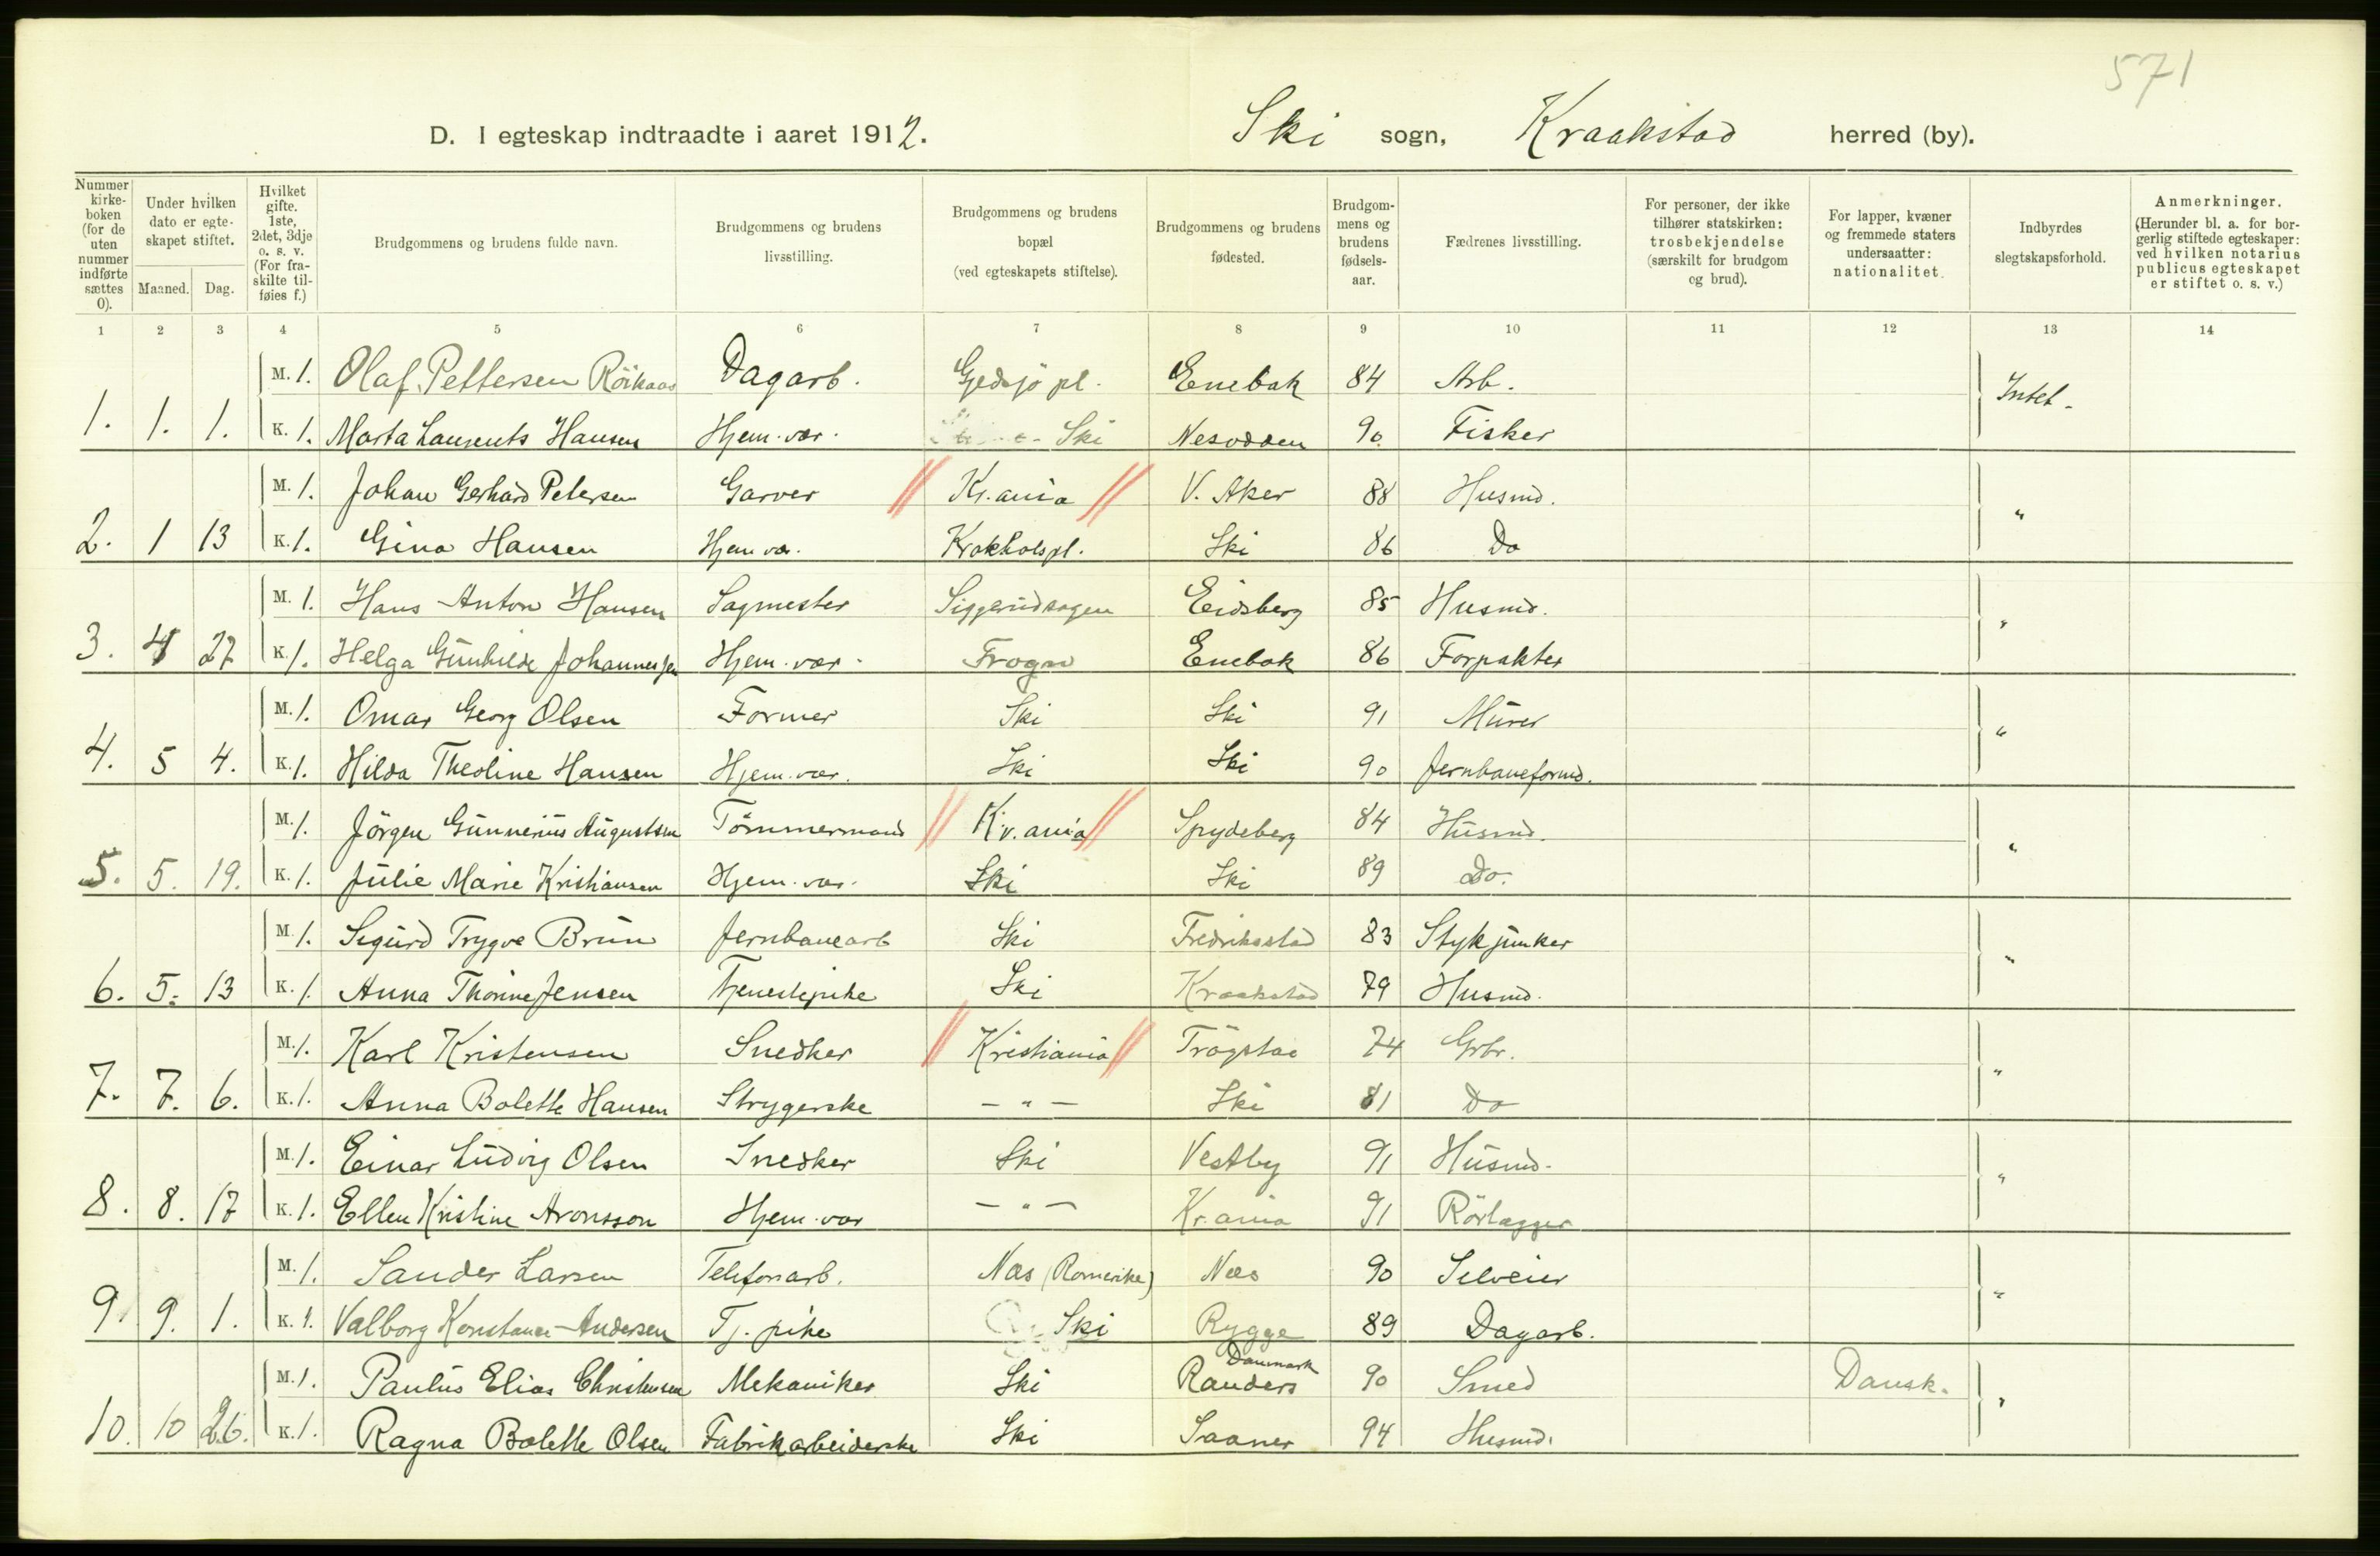 571
D. I egteskap indtraadte i aaret 1912. Ski sogn, Kraakstad herred (by).
Nummer kirke-boken (for de uten nummer indførte sættes 0). Under hvilken dato er egte-skapet stiftet. Maaned. Dag. Hvilket gifte. 1ste, 2det, 3dje o. s. v. (For fra-skilte til-føies f.) Brudgommens og brudens fulde navn. Brudgommens og brudens livsstilling. Brudgommens og brudens bopæl (ved egteskapets stiftelse). Brudgommens og brudens fødested. Brudgom-mens og brudens fødsels-aar. Fædrenes livsstilling. For personer, der ikke tilhører statskirken: trosbekjendelse (særskilt for brudgom og brud). For lapper, kvæner og fremmede staters undersaatter: nationalitet. Indbyrdes slegtskapsforhold. Anmerkninger. (Herunder bl. a. for bor-gerlig stiftede egteskaper: ved hvilken notarius publicus egteskapet er stiftet o. s. v.)
1 2 3 4 5 6 7 8 9 10 11 12 13 14
M. 1. Olaf Pettersen Röikaas Dagarb. Gjedsjö pl. Enebak 84 Arb. Intet.
1. 1. 1. K. 1. Marta Laurents Hansen Hjem. vær. Ski Nesodden 90. Fisker
M. 1. Johan Gerhard Petersen Garver Kr.ania V. Aker 88 Husmd. "
2. 1 13 K. 1. Gina Hansen Hjem vær. Krokholspl. Ski 86 Do
M. 1. Hans Anton Hansen Sagmester Siggerudsagen Eidsberg 85 Husmd. "
3. 4 27 K. 1. Helga Gunhilde Johannesen Hjem. vær. Frogn Enebak 86 Forpakter
M. 1. Omar Georg Olsen Former Ski Ski 91 Murer "
4. 5 4. K. 1. Hilda Theoline Hansen Hjem. vær. Ski Ski 90 Jernbaneformd.
M. 1. Jörgen Gunnerius Augustsen Tömmermand Kr.ania Spydeberg 84 Husmd. "
5. 5. 19. K. 1. Julie Marie Kristiansen Hjem. vær. Ski Ski 89 Do.
M. 1. Sigurd Trygve Brun Jernbanearb Ski Fredriksstad 83 Stykjunker "
6. 5. 13 K. 1. Anna Thorine Jensen Tjenestepike Ski Kraakstad 79 Husmd.
M. 1. Karl Kristensen Snedker Kristiania Trögstad 74 Grbr. "
7. 7. 6. K. 1. Anna Bolette Hansen Strygerske - " - Ski 81 Do
M. 1. Einar Ludvig Olsen Snedker Ski Vestby 91 Husmd. "
8. 8. 17 K. 1. Ellen Kristine Aronsson Hjem. vær - " - Kr.ania 91 Rörlægger
M. 1. Sander Larsen Telefonarb. Næs (Romerike) Næs 90 Selveier "
9. 9. 1. K. 1. Valborg Konstance Andersen Tj. pike Ski Rygge 89 Dagarb.
M. 1. Paulus Elias Christensen Mekaniker Ski Randers Danmark 90 Smed Dansk. "
10. 10 26. K. 1. Ragna Bolette Olsen Fabrikarbeiderske Ski Saaner 94 Husmd.